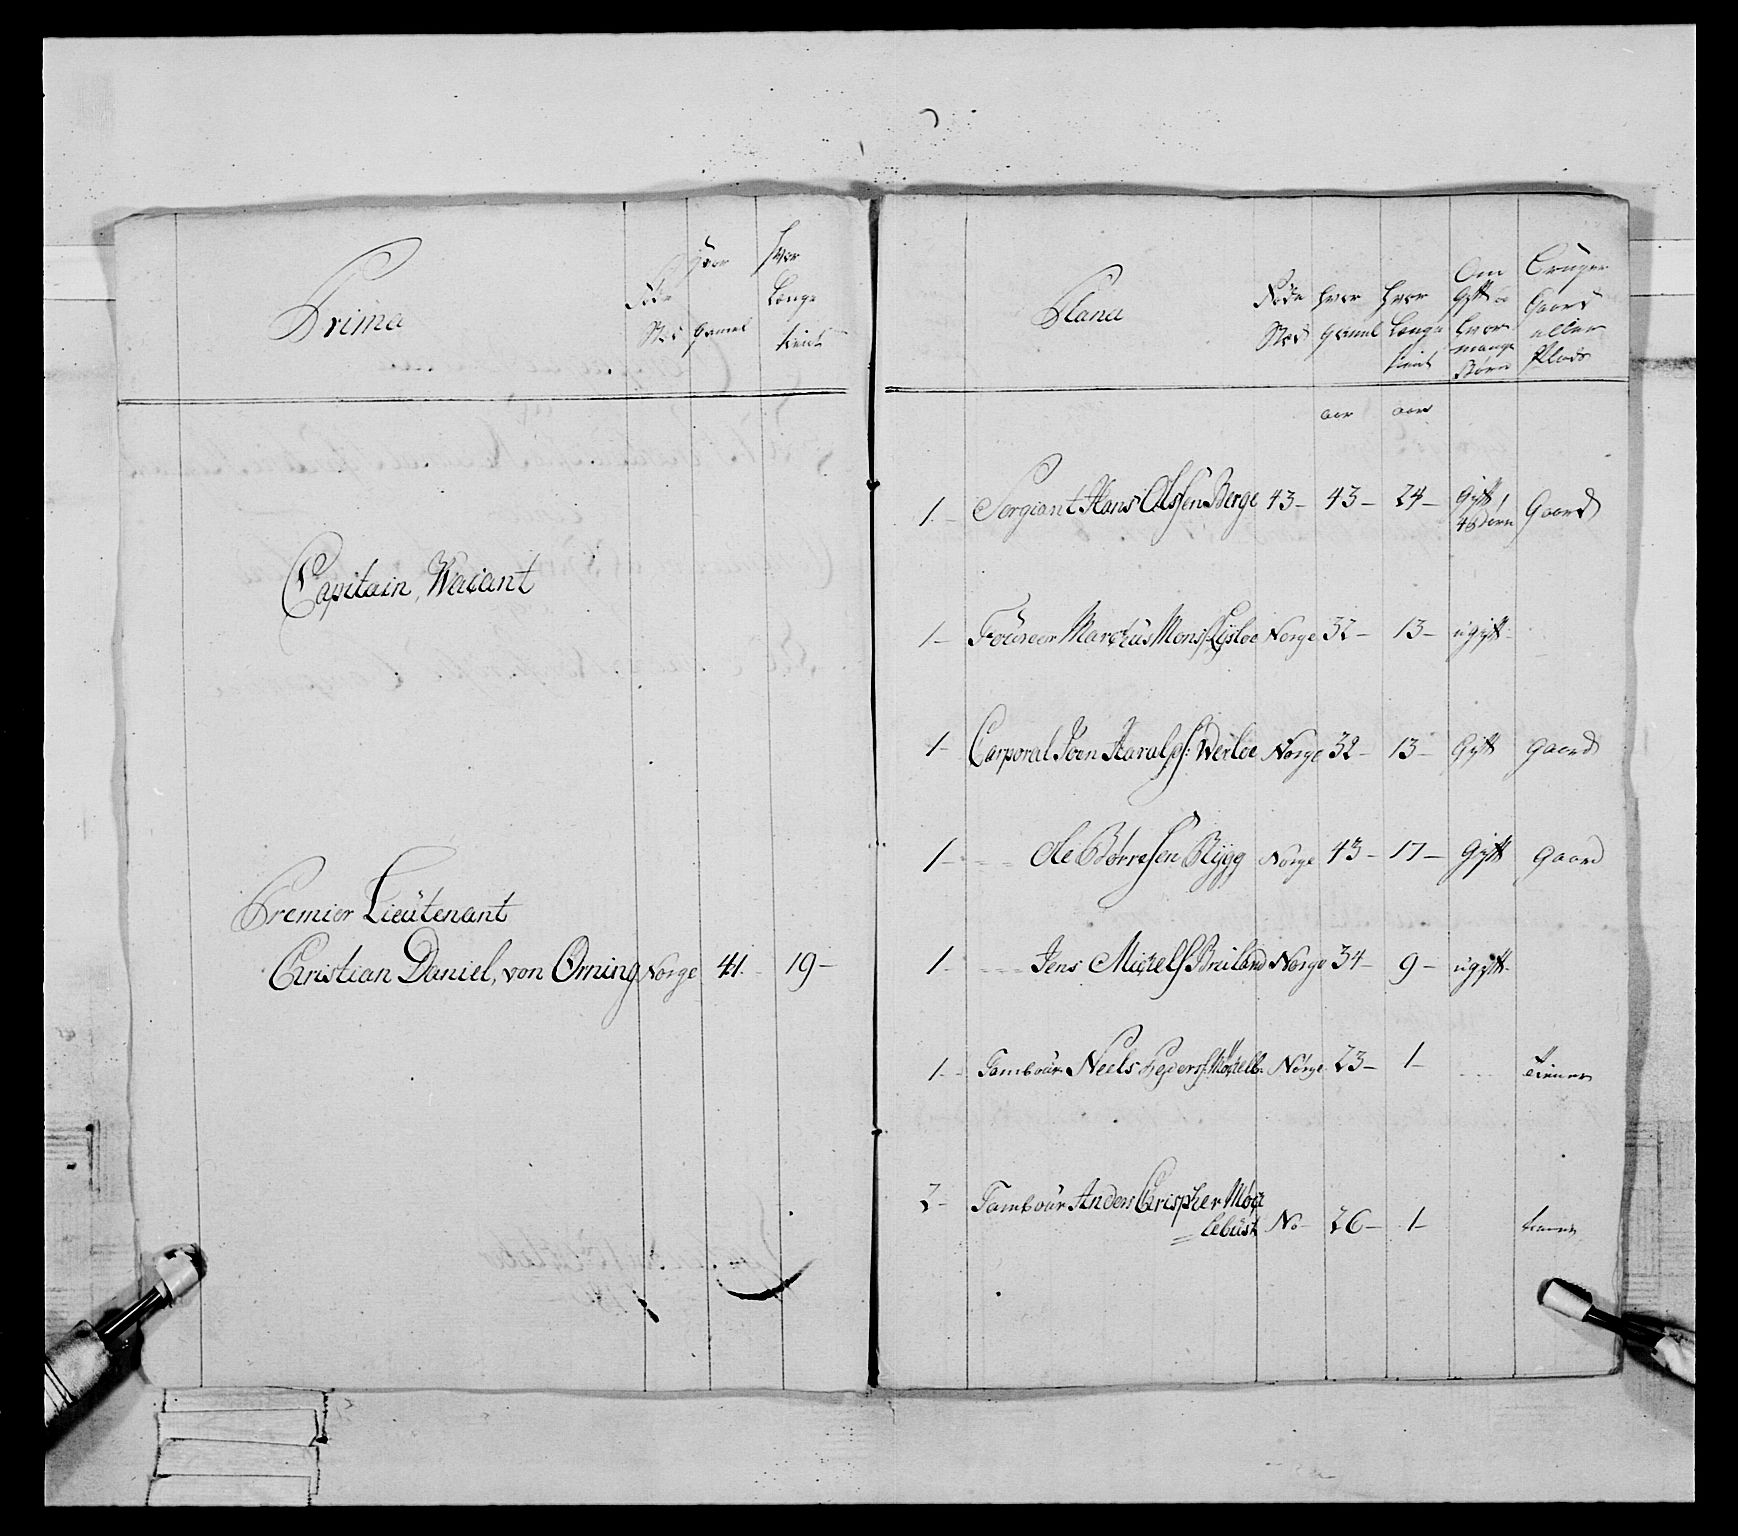 Prima
Føde Sted
Hvor Gamel
Hvor Længe tient
Capitain, Wacant
Premier Lieutenant
Christian Daniel, von Orning Norge 41. 19-
Plana
Føde Sted
Hvor Gamel
Hvor Længe tient
Om Gift og Hvor mange Børn
Bruger Gaard eller Plads
aar aar
1. Sergiant Hans Olsen Berge 43- 43- 24- Gift 4 Børn Gaard
1- Foureer Marchus Mons: Lysloe Norge 32- 13- ugift.
1- Carporal Joen Haralds: Werloe Norge 32- 13- Gift Gaard
1- Ole Børresen Rygg Norge 43- 17- Gift Gaard
1- Jens Michels Breiland Norge 34- 9- ugift.
1- Tambour Neels Peders: Norge 23- 1-
2- Tambour Anders Chrispher Mox
lebust No- 26- 1-